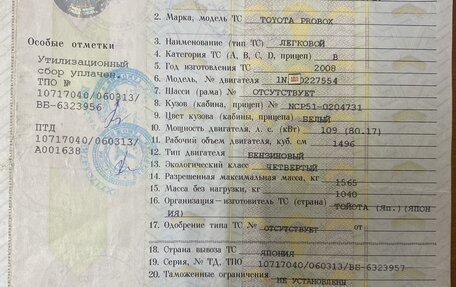 2. Марка, модель ТС TOYOTA PROBOX
Особые отметки
Утилизационный
сбор уплачен.
ТПО №
10717040/060313/
ВВ-6323956
ПТД
10717040/060313/
А001638
3. Наименование (тип ТС) ЛЕГКОВОЙ
4. Категория ТС (А, В, С, D, прицеп) В
5. Год изготовления ТС 2008
6. Модель, № двигателя 1N 0227554
7. Шасси (рама) № ОТСУТСТВУЕТ
8. Кузов (кабина, прицеп) № NCP51-0204731
9. Цвет кузова (кабины, прицепа) БЕЛЫЙ
10. Мощность двигателя, л. с. (кВт) 109 (80.17)
11. Рабочий объем двигателя, куб. см 1496
12. Тип двигателя БЕНЗИНОВЫЙ
13. Экологический класс ЧЕТВЕРТЫЙ
14. Разрешенная максимальная масса, кг 1565
15. Масса без нагрузки, кг 1040
16. Организация-изготовитель ТС (страна) ТОЙОТА (Яп.)(ЯПОН
ИЯ)
17. Одобрение типа ТС № ОТСУТСТВУЕТ от
18. Страна вывоза ТС ЯПОНИЯ
19. Серия, № ТД, ТПО 10717040/060313/ВВ-6323957
20. Таможенные ограничения НЕ УСТАНОВЛЕНЫ